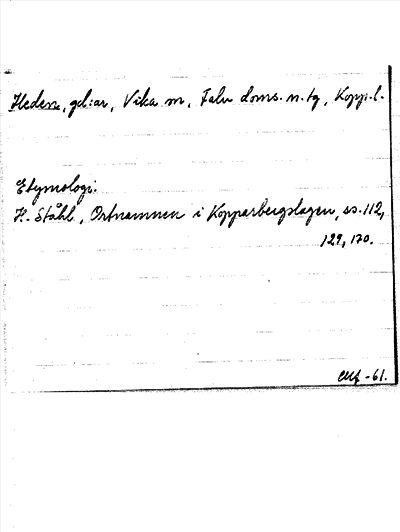 Heden, gd:ar, Vika sn, Falu doms. n. tg, Kopp. l.
Etymologi:
H. Ståhl, Ortnamnen i Kopparbergslagen, ss. 112,
129, 170.
-61.